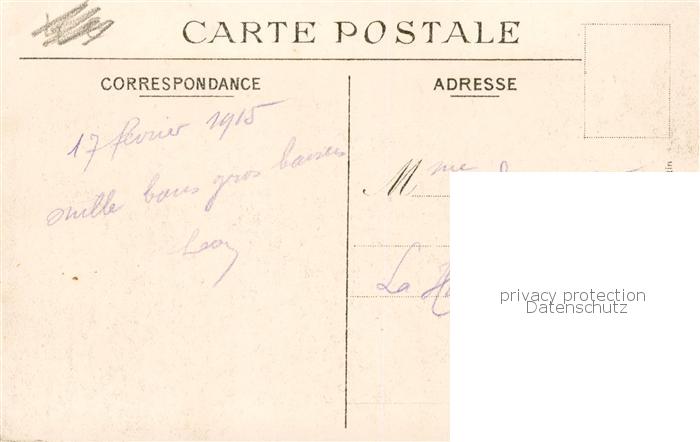 CARTE POSTALE
CORRESPONDANCE
ADRESSE
17 février 1915
mille bons gros baisers
Mme
La
privacy protection
Datenschutz